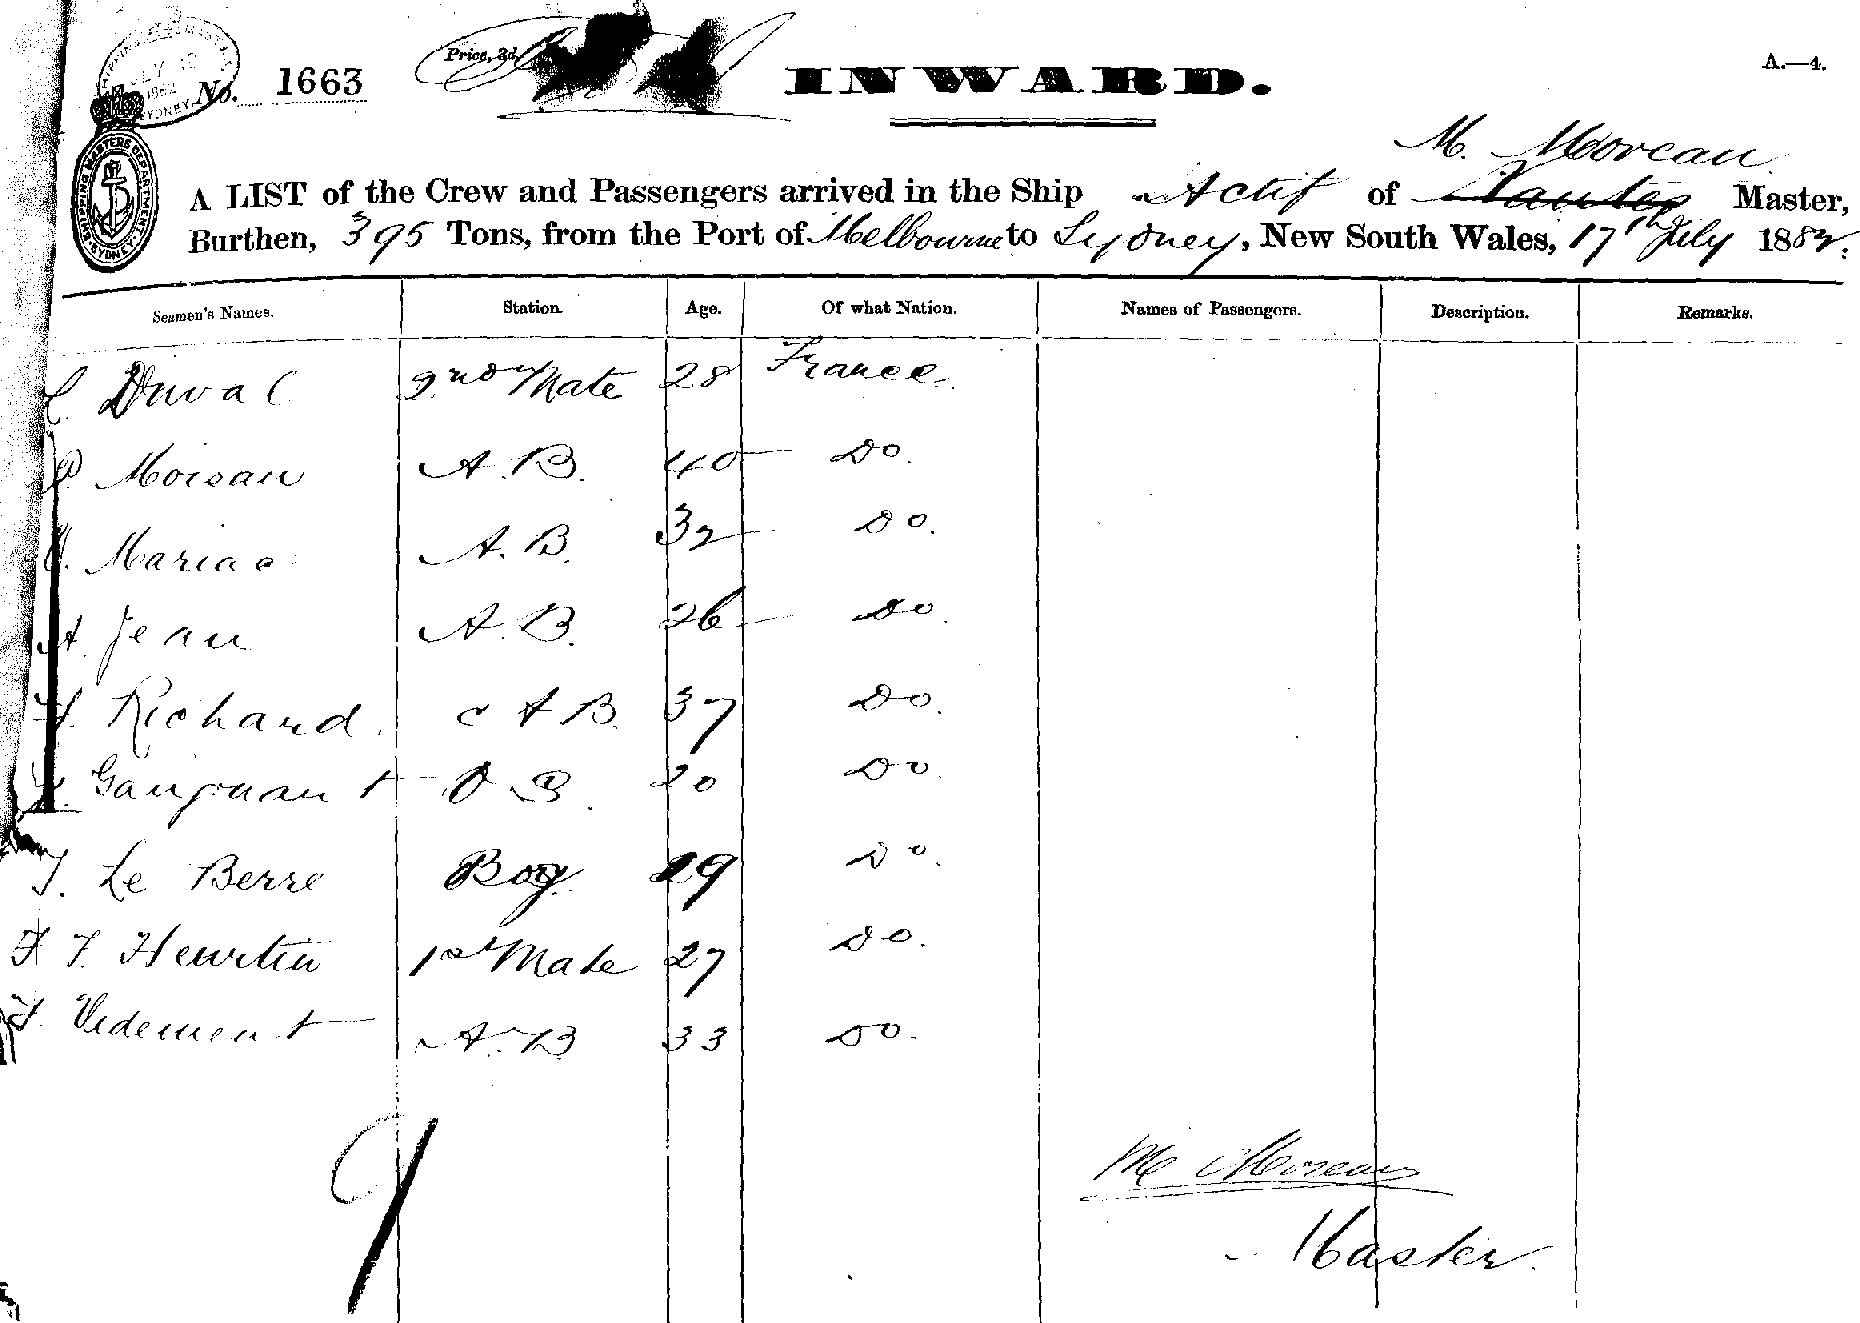 No. 1663
Price, 3d.
INWARD.
A.—4.
M. Moreau
A LIST of the Crew and Passengers arrived in the Ship Actif of Nantes Master,
Burthen, 395 Tons, from the Port of Melbourne to Sydney, New South Wales, 17th July 1882.
Seamen's Names. Station. Age. Of what Nation. Names of Passengers. Description. Remarks.
Duval 2nd Mate 28 France
P. Moisan A. B. 40 Do.
Mariac A. B. 32 Do.
A. Jean A. B. 26 Do.
F. Richard A B. 37 Do.
O S. 20 Do.
Le Berre Boy 19 Do.
1st Mate 27 Do.
F. Videment A. B 33 Do.
9
M Moreau
Master.